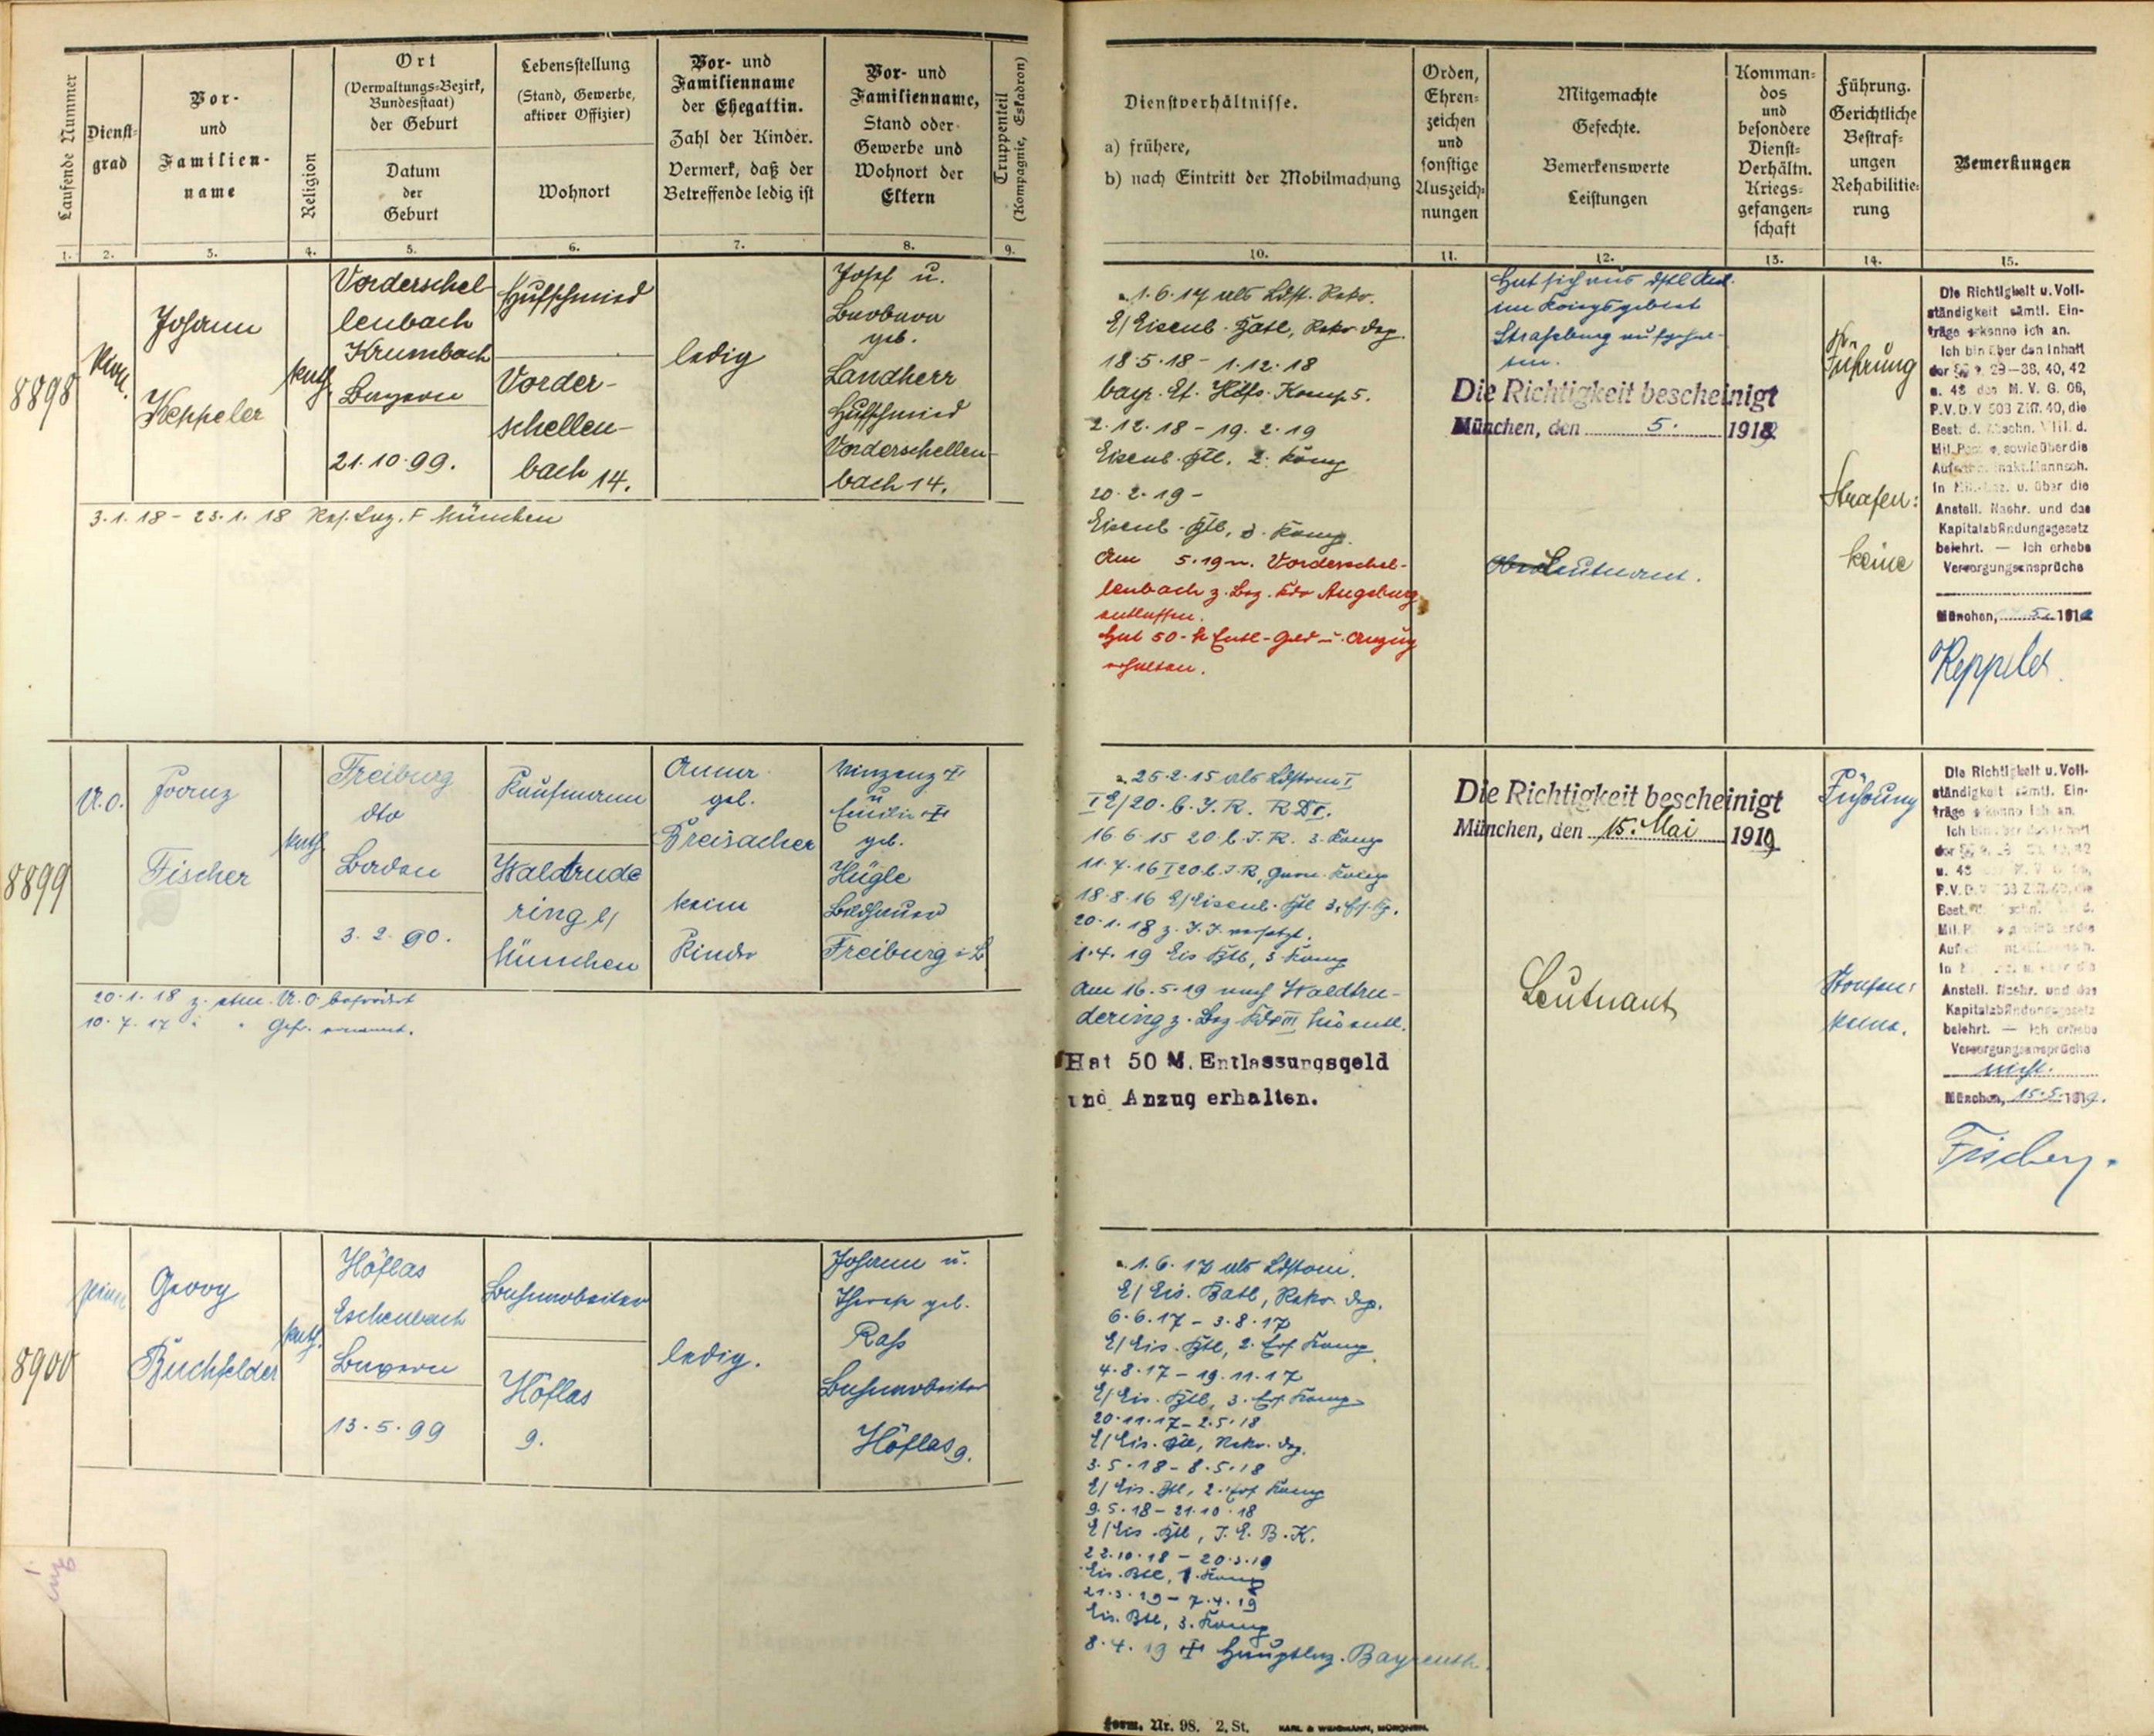 Laufende Nummer
Dienst-
grad
Vor-
und
Familien-
name
Religion
Ort
(Verwaltungs-Bezirk,
Bundesstaat)
der Geburt
Datum
der
Geburt
Lebensstellung
(Stand, Gewerbe,
aktiver Offizier)
Wohnort
Vor- und
Familienname
der Ehegattin.
Zahl der Kinder.
Vermerk, daß der
Betreffende ledig ist
Vor- und
Familienname,
Stand oder
Gewerbe und
Wohnort der
Eltern
Truppenteil
(Kompagnie, Eskadron)
Dienstverhältnisse.
a) frühere,
b) nach Eintritt der Mobilmachung
Orden,
Ehren-
zeichen
und
sonstige
Auszeich-
nungen
Mitgemachte
Gefechte.
Bemerkenswerte
Leistungen
Komman-
dos
und
besondere
Dienst-
Verhältn.
Kriegs-
gefangen-
schaft
Führung.
Gerichtliche
Bestraf-
ungen
Rehabilitie-
rung
Bemerkungen
1. 2. 3. 4. 5. 6. 7. 8. 9. 10. 11. 12. 13. 14. 15.
8898
Johann
Keppeler
kath.
Vorderschel-
lenbach
Krumbach
Bayern
21.10.99.
Hufschmied
Vorder-
schellen-
bach 14.
ledig
Josef u.
Barbara
geb.
Landherr
Hufschmied
Vorderschellen-
bach 14.
3.1.18 – 23.1.18 Res. Laz. F München
1.6.17 als Ldst. Rekr.
E/Eisenb. Batl, Rekr. Dep.
18.5.18 – 1.12.18
bayr. Et. Hilfs. Komp 5.
2.12.18 – 19.2.19
Eisenb. Btl. 2. Komp
20.2.19 –
Eisenb. Btl, 3. Komp.
Am 5.19 n. Vorderschel-
lenbach z. Bez. Kdo Augsburg
entlassen.
Hat 50 M Entl-Geld u. Anzug
erhalten.
Hat sich aus dstl Anl.
im Kriegsgebiet
Strassburg aufgehal-
ten.
Die Richtigkeit bescheinigt
München, den 5. 1919
Leutnant.
Führung
Strafen:
keine
Die Richtigkeit u. Voll-
ständigkeit sämtl. Ein-
träge erkenne ich an.
Ich bin über den Inhalt
der §§ 29—38, 40, 42
u. 48 des M. V. G. 06,
P.V.D.V 503 Ziff. 40, die
Best. d. Abschn. VIII. d.
sowie über die
u. über die
Anstell. Nachr. und das
Kapitalabfindungsgesetz
belehrt. — Ich erhebe
Versorgungsansprüche
München,
Keppeler
8899
U.O.
Franz
Fischer
kath
Freiburg
dto
Baden
3.2.90.
Kaufmann
Waldtrude
ring b/
München
Anna
geb.
Breisacher
keine
Kinder
Vinzenz †
u
Emilie †
geb.
Hügle
Bildhauer
Freiburg i. B.
20.1.18 z. etm. U.O. befördert
10.7.17 " " Gefr. ernannt.
25.2.15 als Ldstrm I
I E/20. b. I.R. R.D I.
16.6.15 20. b. I.R. 3. Komp
11.7.16 I 20. b. I.R, Gen. Komp
18.8.16 E/Eisenb. Btl 3. Ers. Kp.
20.1.18 z. I.J. versetzt.
1.4.19 Eis Btl, 3 Komp
Am 16.5.19 nach Waldtru-
dering z. Bez Kdo III Mü entl.
Hat 50 M. Entlassungsgeld
und Anzug erhalten.
Die Richtigkeit bescheinigt
München, den 15. Mai 1919
Leutnant
Führung
Strafen:
keine.
Die Richtigkeit u. Voll-
ständigkeit sämtl. Ein-
träge erkenne ich an.
Anstell. Nachr. und das
Kapitalabfindungsgesetz
belehrt. — Ich erhebe
Versorgungsansprüche
nicht.
München, 15.5. 1919.
Fischer.
8900
Georg
Buchfelder
kath.
Höflas
Eschenbach
Bayern
13.5.99
Bahnarbeiter
Höflas
9.
ledig.
Johann u.
Therese geb.
Raß
Bahnarbeiter
Höflas 9.
1.6.17 als Ldstom.
E/Eis. Batl, Rekr. Dep.
6.6.17 – 3.8.17
E/Eis. Btl, 2. Ers Komp
4.8.17 – 19.11.17
E/Eis. Btl, 3. Ers. Komp
20.11.17 – 2.5.18
E/Eis. Btl, Rekr. Dep.
3.5.18 – 8.5.18
E/Eis. Btl, 2. Ers Komp
9.5.18 – 21.10.18
E/Eis. Btl, I. E. B. K.
22.10.18 – 20.3.19
Eis. Btl, 1. Komp
21.3.19 – 7.4.19
Eis. Btl, 3. Komp
8.4.19 † Hauptlaz. Bayreuth.
Form. Nr. 98. 2. St.
KARL & WEIGMANN, MÜNCHEN.